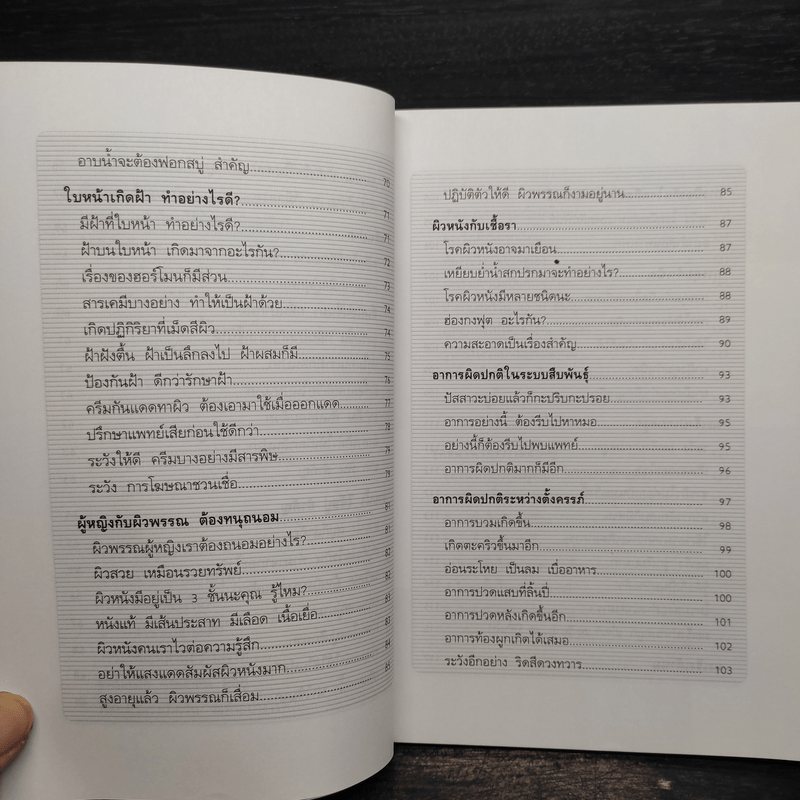 อาบน้ำจะต้องฟอกสบู่ สำคัญ 70
ใบหน้าเกิดฝ้า ทำอย่างไรดี? 71
มีฝ้าที่ใบหน้า ทำอย่างไรดี? 71
ฝ้าบนใบหน้า เกิดมาจากอะไรกัน? 72
เรื่องของฮอร์โมนก็มีส่วน 73
สารเคมีบางอย่าง ทำให้เป็นฝ้าด้วย 74
เกิดปฏิกิริยาที่เม็ดสีผิว 74
ฝ้าฝังตื้น ฝ้าเป็นลึกลงไป ฝ้าผสมก็มี 75
ป้องกันฝ้า ดีกว่ารักษาฝ้า 76
ครีมกันแดดทาผิว ต้องเอามาใช้เมื่อออกแดด 77
ปรึกษาแพทย์เสียก่อนใช้ดีกว่า 78
ระวังให้ดี ครีมบางอย่างมีสารพิษ 79
ระวัง การโฆษณาชวนเชื่อ 79
ผู้หญิงกับผิวพรรณ ต้องทนุถนอม 81
ผิวพรรณผู้หญิงเราต้องถนอมอย่างไร? 81
ผิวสวย เหมือนรวยทรัพย์ 82
ผิวหนังมีอยู่เป็น 3 ชั้นนะคุณ รู้ไหม? 82
หนังแท้ มีเส้นประสาท มีเลือด เนื้อเยื่อ 83
ผิวหนังคนเราไวต่อความรู้สึก 83
อย่าให้แสงแดดสัมผัสผิวหนังมาก 84
สูงอายุแล้ว ผิวพรรณก็เสื่อม 85
ปฏิบัติตัวให้ดี ผิวพรรณก็งามอยู่นาน 85
ผิวหนังกับเชื้อรา 87
โรคผิวหนังอาจมาเยือน 87
เหยียบย่ำน้ำสกปรกมาจะทำอย่างไร? 88
โรคผิวหนังมีหลายชนิดนะ 88
ฮ่องกงฟุต อะไรกัน? 89
ความสะอาดเป็นเรื่องสำคัญ 90
อาการผิดปกติในระบบสืบพันธุ์ 93
ปัสสาวะบ่อยแล้วก็กะปริบกะปรอย 93
อาการอย่างนี้ ต้องรีบไปหาหมอ 95
อย่างนี้ก็ต้องรีบไปพบแพทย์ 95
อาการผิดปกติมากก็มีอีก 96
อาการผิดปกติระหว่างตั้งครรภ์ 97
อาการบวมเกิดขึ้น 98
เกิดตะคริวขึ้นมาอีก 99
อ่อนระโหย เป็นลม เบื่ออาหาร 100
อาการปวดแสบที่ลิ้นปี่ 100
อาการปวดหลังเกิดขึ้นอีก 101
อาการท้องผูกเกิดได้เสมอ 102
ระวังอีกอย่าง ริดสีดวงทวาร 103